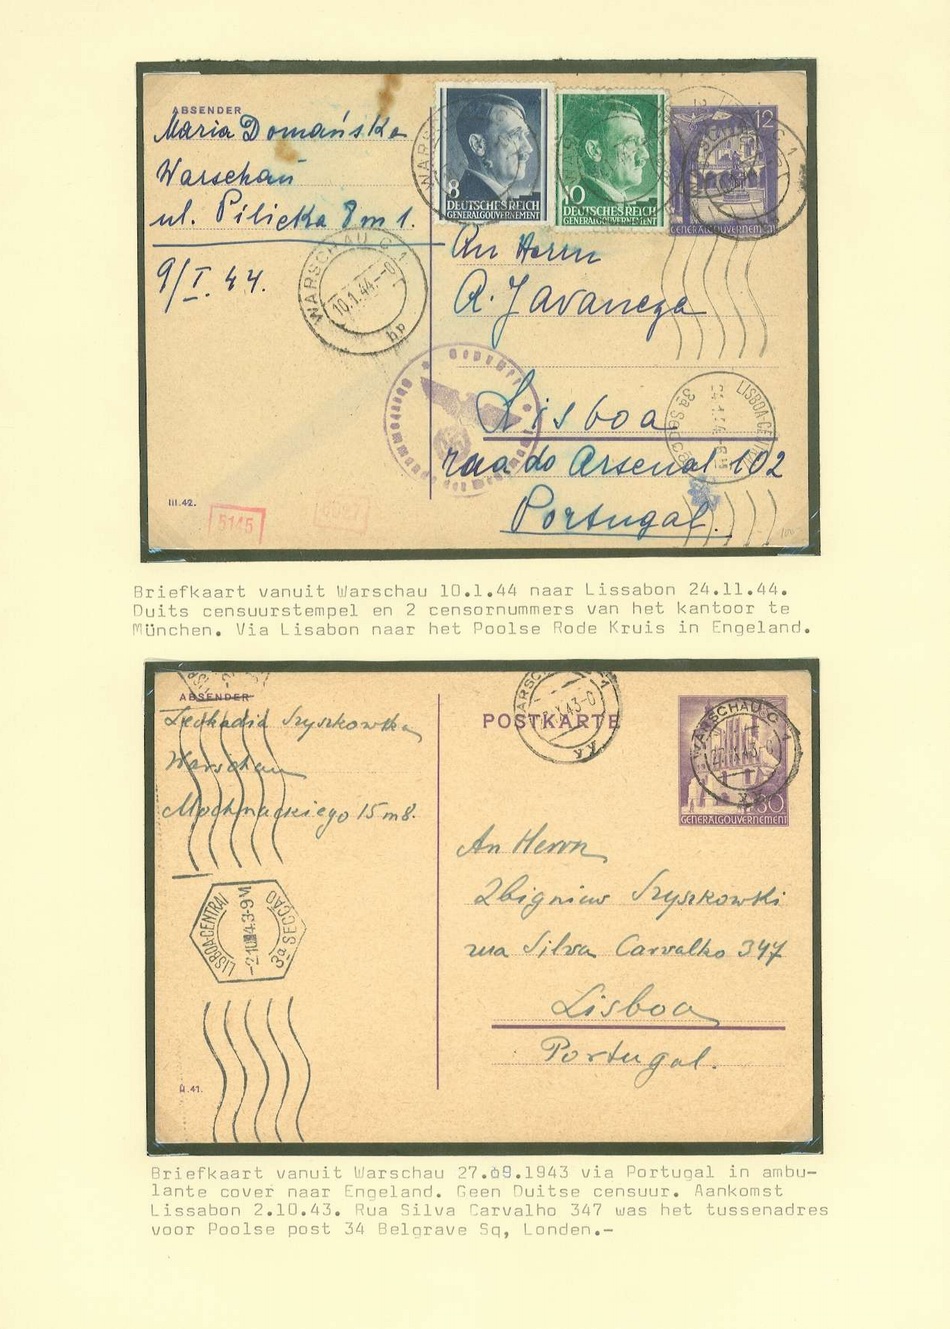 ABSENDER
Maria Domańska
Warschau
ul. Pilicka 8 m 1.
9/I. 44.
8
DEUTSCHES REICH
GENERALGOUVERNEMENT
10
DEUTSCHES REICH
GENERALGOUVERNEMENT
12
GENERALGOUVERNEMENT
WARSCHAU C 1
10.1.44.--0
bp
An Herrn
A. Javaneza
Lisboa
rua do Arsenal 102
Portugal.
LISBOA-CENTRAL
3a SECÇÃO
III.42.
5145
Briefkaart vanuit Warschau 10.1.44 naar Lissabon 24.11.44.
Duits censuurstempel en 2 censornummers van het kantoor te
München. Via Lisabon naar het Poolse Rode Kruis in Engeland.
ABSENDER
Leokadia Szyszkowska
Warschau
Mochnackiego 15 m 8.
POSTKARTE
WARSCHAU C 1
30
GENERALGOUVERNEMENT
An Herrn
Zbigniew Szyszkowski
rua Silva Carvalho 347
Lisboa
Portugal.
LISBOA-CENTRAL
3a SECCÃO
II.41.
Briefkaart vanuit Warschau 27.09.1943 via Portugal in ambu-
lante cover naar Engeland. Geen Duitse censuur. Aankomst
Lissabon 2.10.43. Rua Silva Carvalho 347 was het tussenadres
voor Poolse post 34 Belgrave Sq, Londen.-